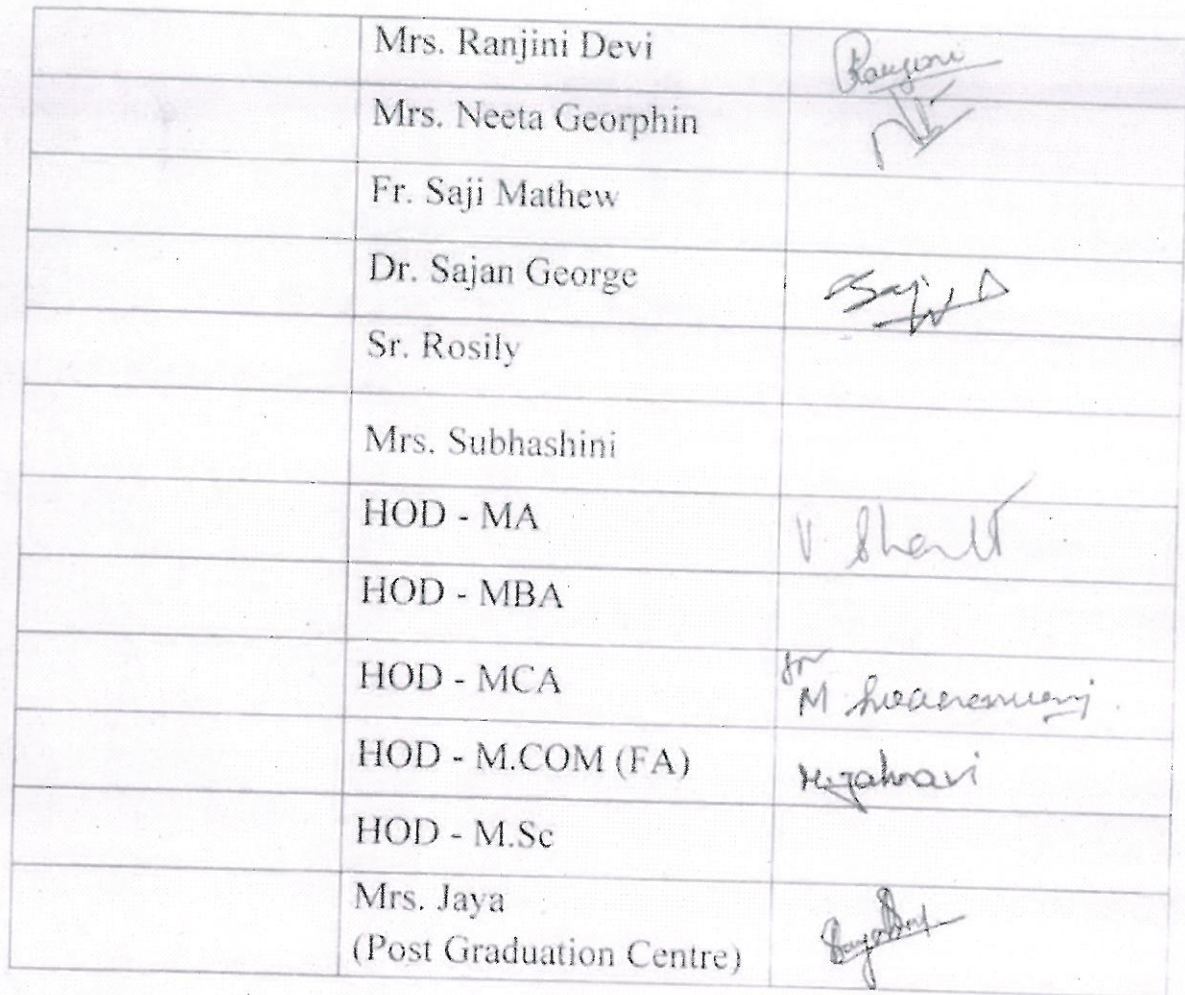 Mrs. Ranjini Devi Ranjini
Mrs. Neeta Georphin
Fr. Saji Mathew
Dr. Sajan George
Sr. Rosily
Mrs. Subhashini
HOD - MA V.
HOD - MBA
HOD - MCA for M
HOD - M.COM (FA)
HOD - M.Sc
Mrs. Jaya
(Post Graduation Centre)